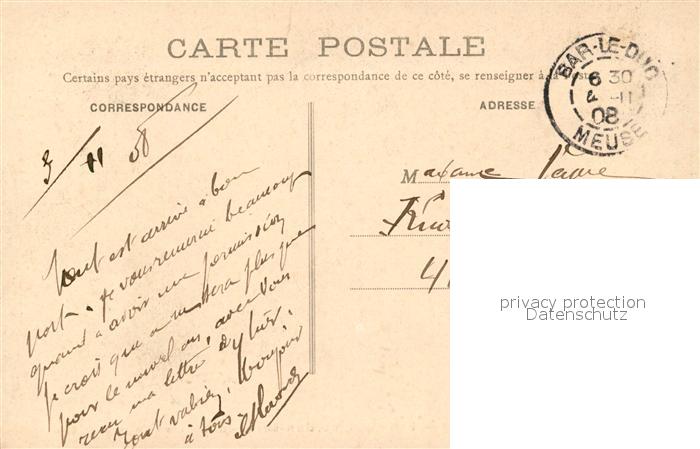 CARTE POSTALE
Certains pays étrangers n'acceptant pas la correspondance de ce côté, se renseigner à la Poste
CORRESPONDANCE
ADRESSE
BAR-LE-DUC
6 30
4 -11
08
MEUSE
3/11 08
Tout est arrivé à bon
port. Je vous remercie beaucoup
quant à avoir une permission
Je crois que ce ne sera plus que
pour le nouvel an, avez vous
reçu ma lettre d'hier.
Tout va bien, bonjour
à tous
Madame
privacy protection
Datenschutz